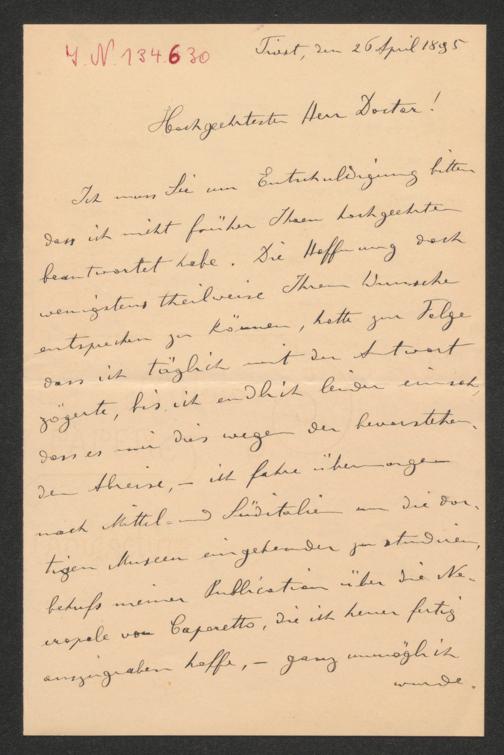 J. N. 134.630
Triest, den 26 April 1895
Hochgeehrtester Herr Doctor!
Ich muss Sie um Entschuldigung bitten
dass ich nicht früher Ihren hochgeehrten
beantwortet habe. Die Hoffnung doch
wenigstens theilweise Ihrem Wunsche
entsprechen zu können, hatte zur Folge
dass ich täglich mit der Antwort
zögerte, bis ich endlich leider einseh,
dass es mir dies wegen der bevorstehen-
den Abreise, – ich fahre übermorgen
nach Mittel- und Süditalien um die dor-
tigen Museen eingehender zu studiren,
behufs meiner Publication über die Ne-
cropole von Caporetto, die ich heuer fertig
auszugraben hoffe, – ganz unmöglich
wurde.